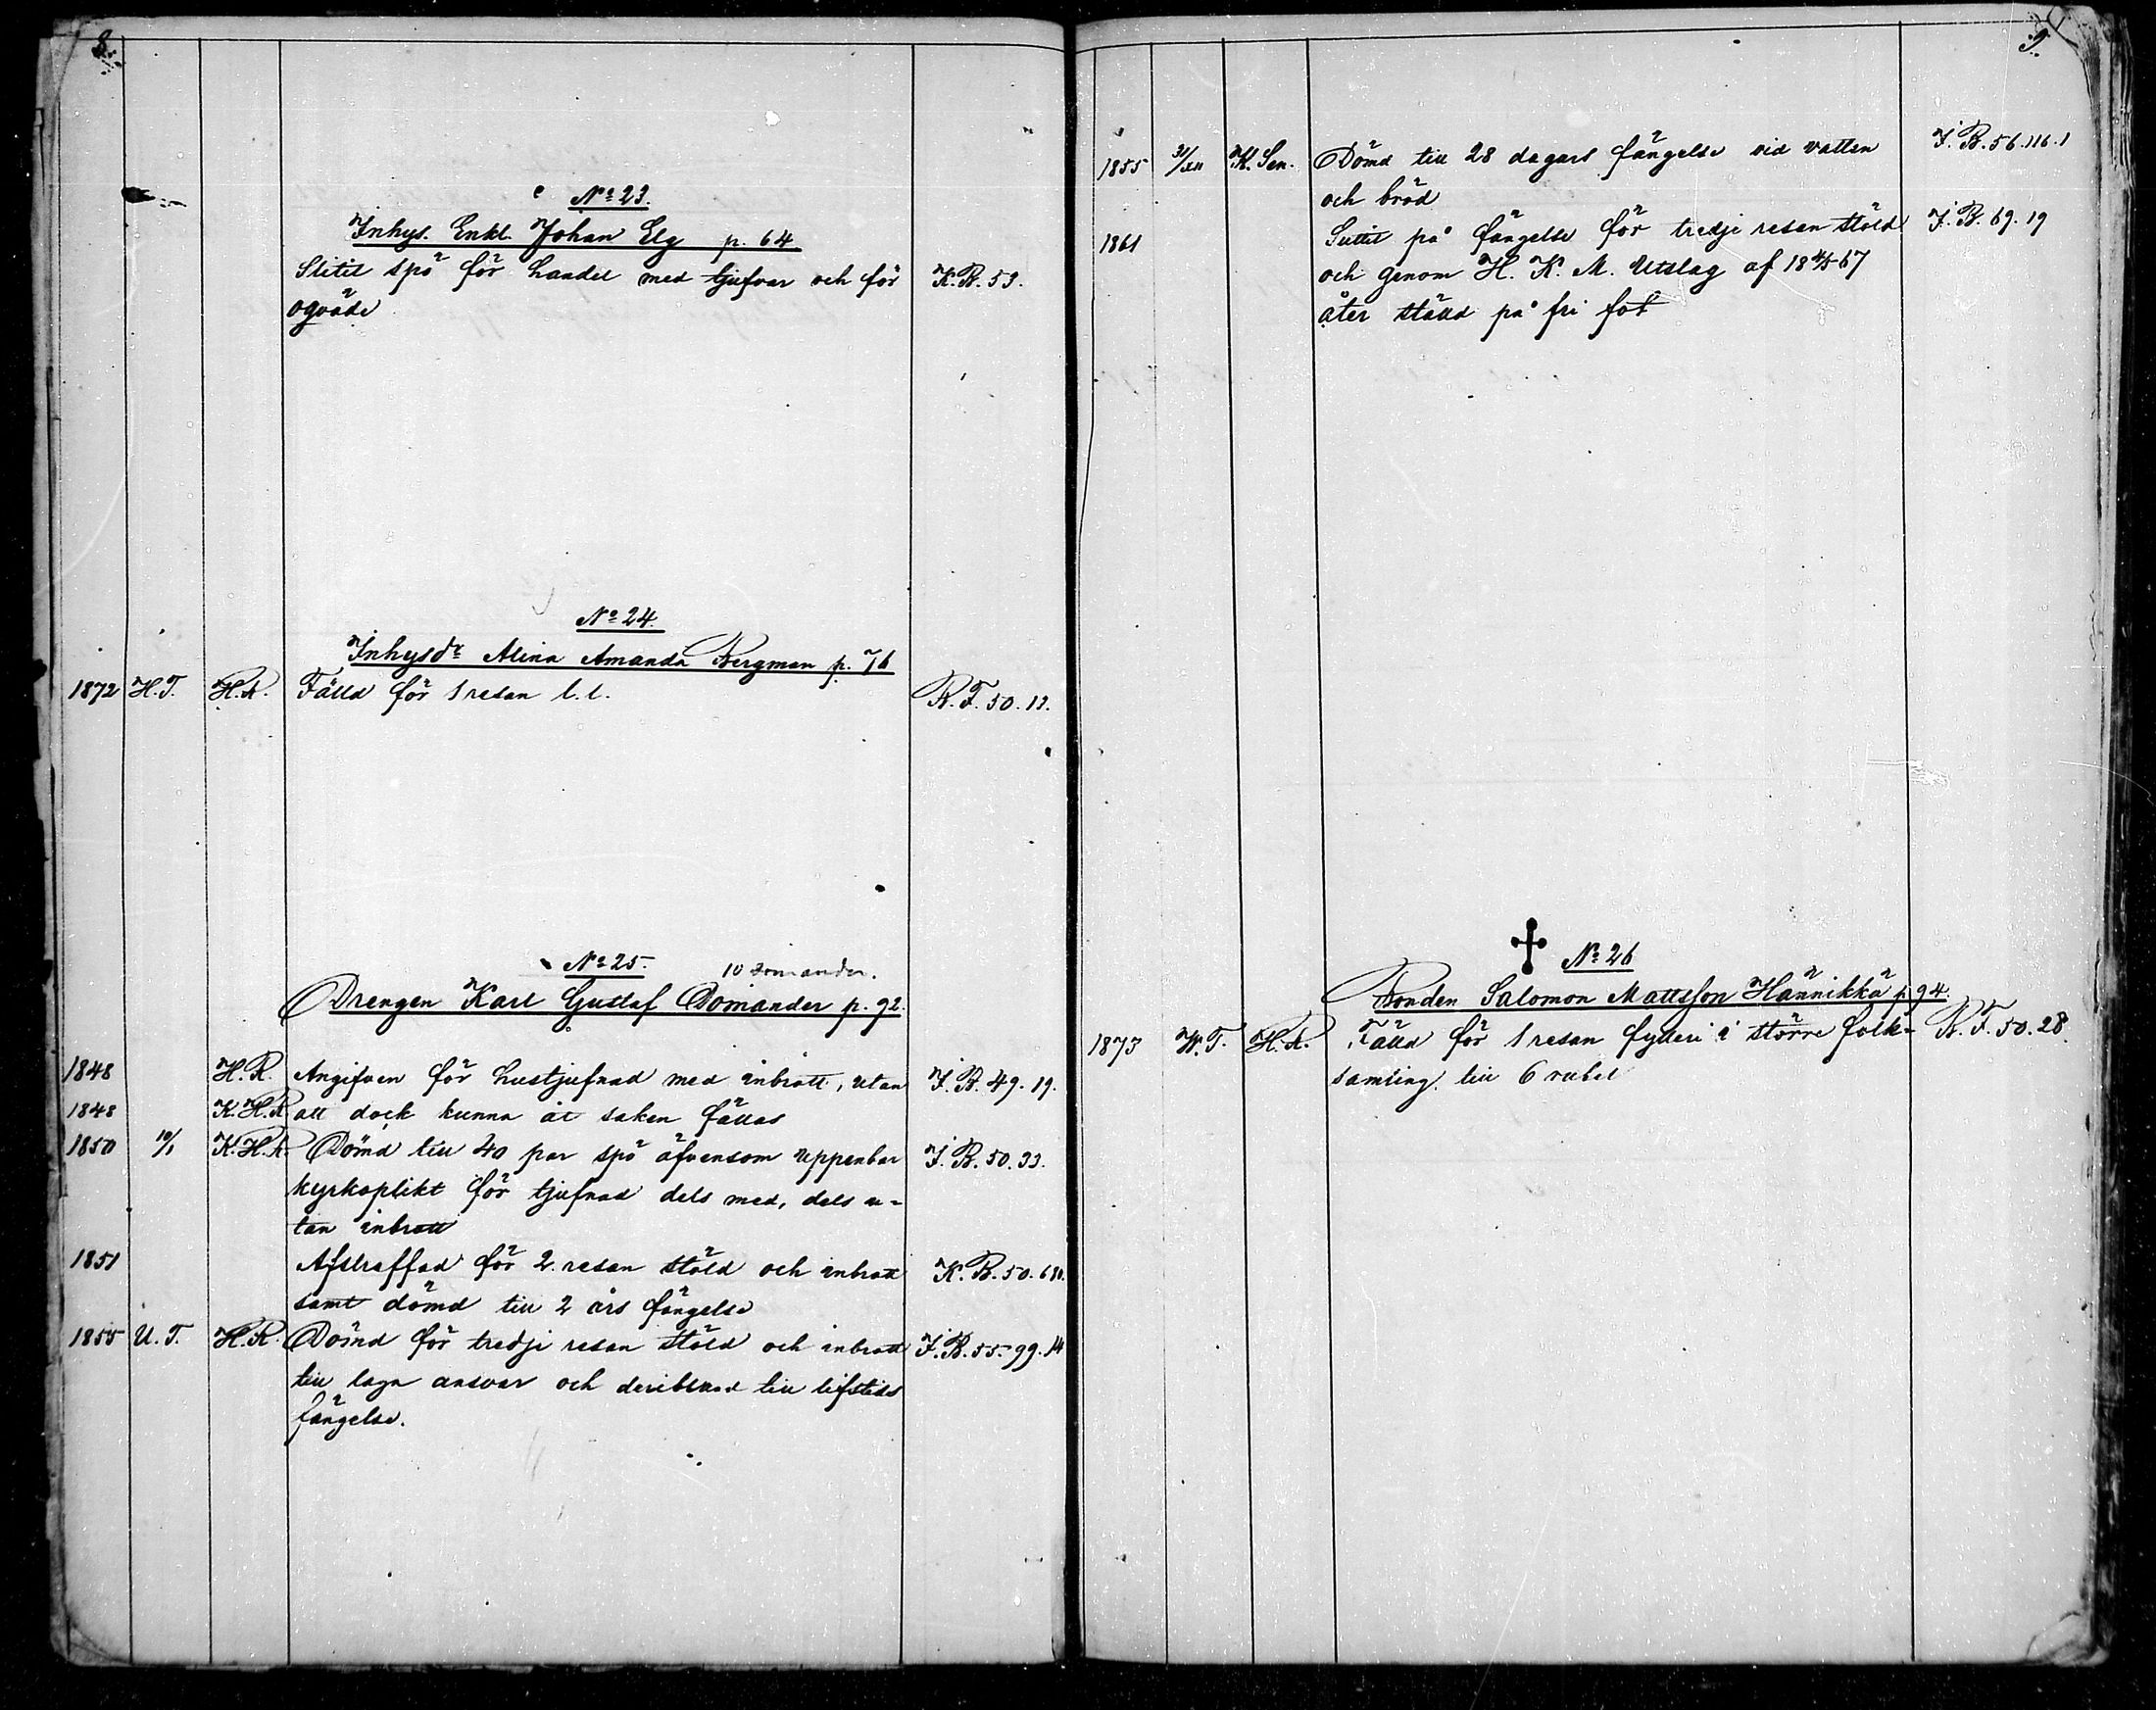 8.
Nº 23.
Inhys. Enkl. Johan Elg p. 64
Slitit spö för handel med tjufvar och för K.B. 53.
ogräde
Nº 24.
Inhysdr Alina Amanda Bergman p. 76
1872 H.T. H.R. Fälld för 1 resan l.l. R.F. 50.13.
Nº 25.
Domander.
Drengen Karl Gustaf Domander p. 92.
1848 H.R. Angifven för hustjufnad med inbrott, utan I.B. 49.19.
1848 K.H.R. att dock kunna åt saken fällas
1850 10/1 K.H.R. Dömd till 40 par spö äfvensom uppenbar I.B. 50.33.
kyrkoplikt för tjufnad dels med, dels u-
tan inbrott
1851 Afstraffad för 2 resan stöld och inbrott K.B. 50.680.
samt dömd till 2 års fängelse
1855 U.T. H.R. Dömd för tredje resan stöld och inbrott I.B. 55.99.14
till laga ansvar och deribland till lifstids
fängelse.
9.
1855 31/XII K. Sen. Dömd till 28 dagars fängelse vid vatten I.B. 56.116.1
och bröd
1861 Suttit på fängelse för tredje resan stöld I.B. 69.19
och genom H.K.M. Utslag af 18 4/5 67
åter ställd på fri fot
Nº 26
Bonden Salomon Mattsson Hännikkä p. 94.
1873 W.T. H.R. Fälld för 1 resan fylleri i större folk- R.F. 50.28.
samling till 6 rubel